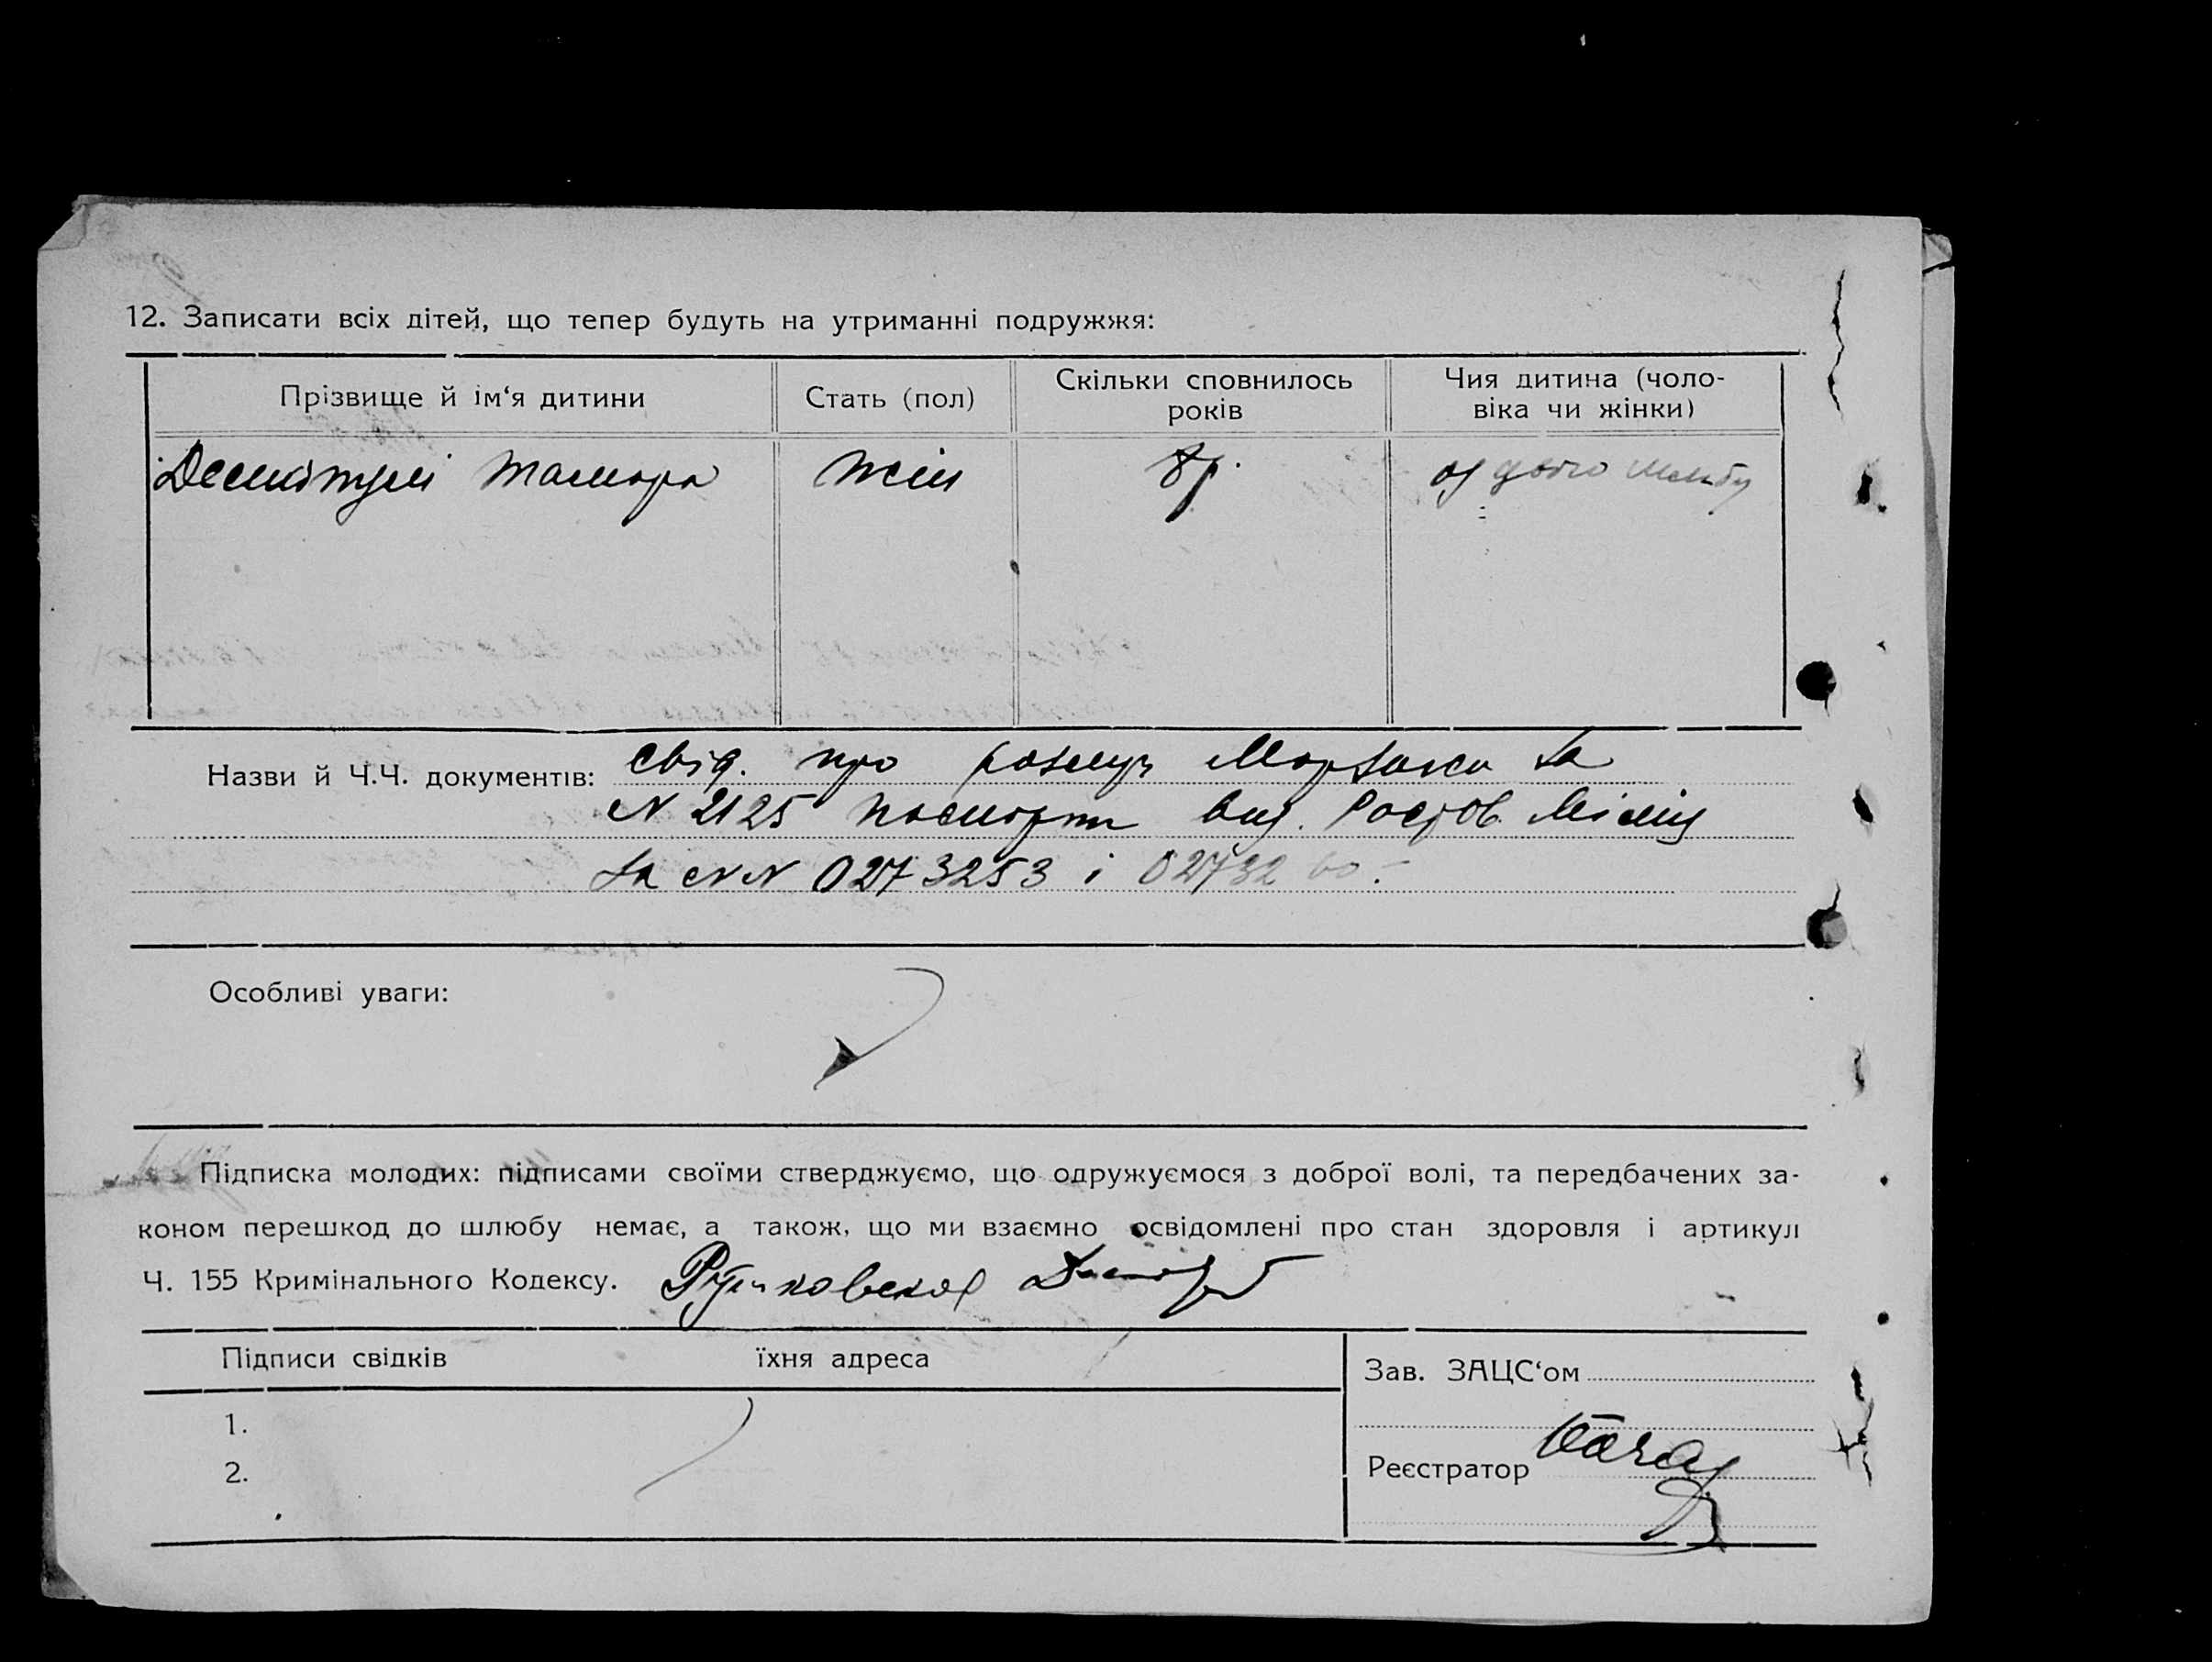 12. Записати всіх дітей, що тепер будуть на утриманні подружжя:
Прізвище й ім‘я дитини
Стать (пол)
Скільки сповнилось
років
Чия дитина (чоло-
віка чи жінки)
Тамара
жін
8 р.
Назви й Ч.Ч. документів:
свід. про за
N 2125 паспорти вид. Ростов. Міліц
за NN 0273253 і
Особливі уваги:
Підписка молодих: підписами своїми стверджуємо, що одружуємося з доброї волі, та передбачених за-
коном перешкод до шлюбу немає, а також, що ми взаємно освідомлені про стан здоровля і артикул
Ч. 155 Кримінального Кодексу.
Підписи свідків
їхня адреса
Зав. ЗАЦС‘ом
1.
Реєстратор
2.